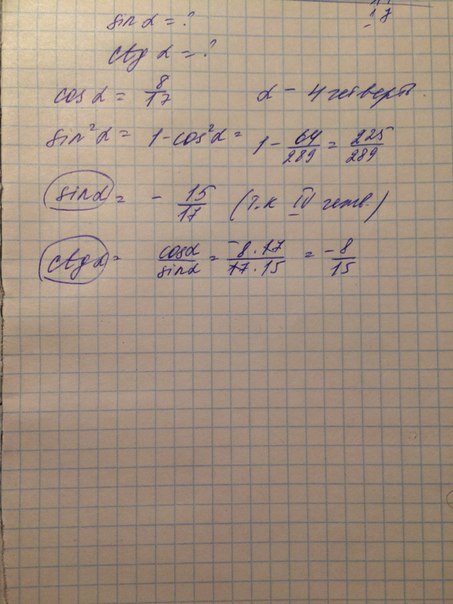 sin α = ?
ctg α = ?
cos α = 8/17 α – 4 четверть.
sin²α = 1 - cos²α = 1 - 64/289 = 225/289
sin α = - 15/17 (т.к IV четв.)
ctg α = cosα/sinα = -8·17/17·15 = -8/15